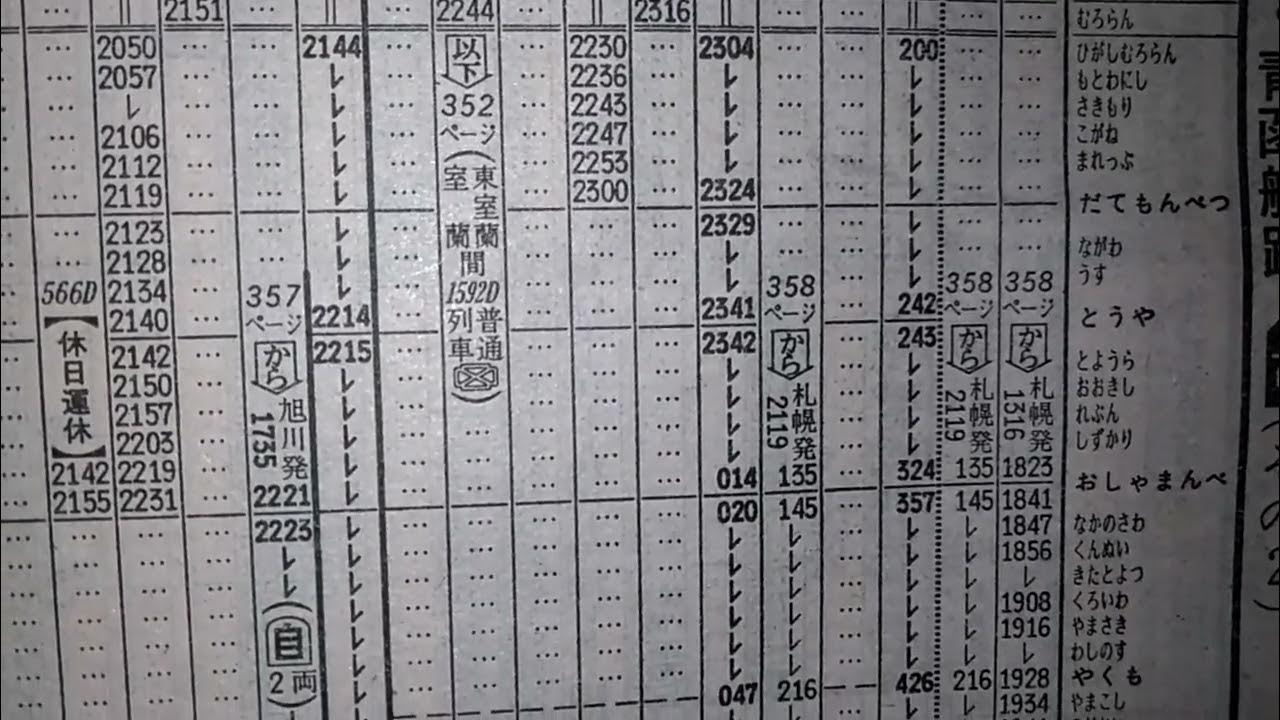 2151 2244 2316 むろらん
2050 2144 以下 2230 2304 200 ひがしむろらん
2057 2236 もとわにし
352 2243 さきもり
2106 ページ 2247 こがね
2112 2253 まれっぷ
2119 2300 2324 だてもんべつ
(東室蘭
室蘭間
2123 2329 ながわ
2128 うす
566D 2134 357 1592D 358 358 358
2140 ページ 2214 2341 ページ 242 ページ ページ とうや
普通
列車
【休日運休】
2142 から 2215 2342 から 243 から から とようら
2150 おおきし
2157 旭川発 札幌発 札幌発 札幌発 れぶん
2203 1735 2119 2119 1316 しずかり
2142 2219 014 135 324 135 1823 おしゃまんべ
2155 2231 2221 020 145 357 145 1841
2223 1847 なかのさわ
1856 くんぬい
きたとよつ
1908 くろいわ
自 1916 やまさき
わしのす
2両 047 216 426 216 1928 やくも
1934 やまこし